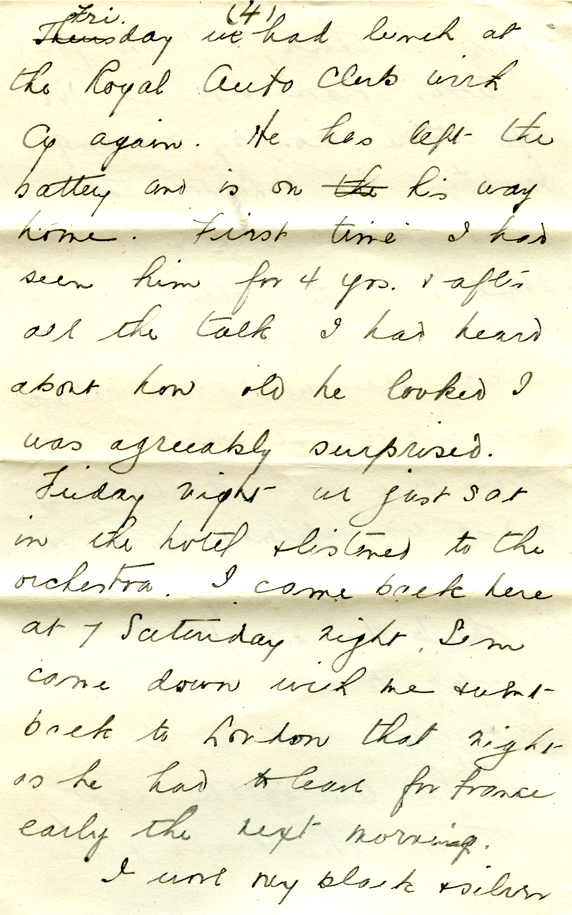 (4)
Fri.
Thursday we had lunch at
the Royal Auto Club with
Cy again. He has left the
battery and is on the his way
home. First time I had
seen him for 4 yrs. & after
all the talk I had heard
about how old he looked I
was agreeably surprised.
Friday night we just sat
in the hotel & listened to the
orchestra. I came back here
at 7 Saturday night, Sem
came down with me & went
back to London that night
as he had to leave for France
early the next morning.
I wore my black & silver